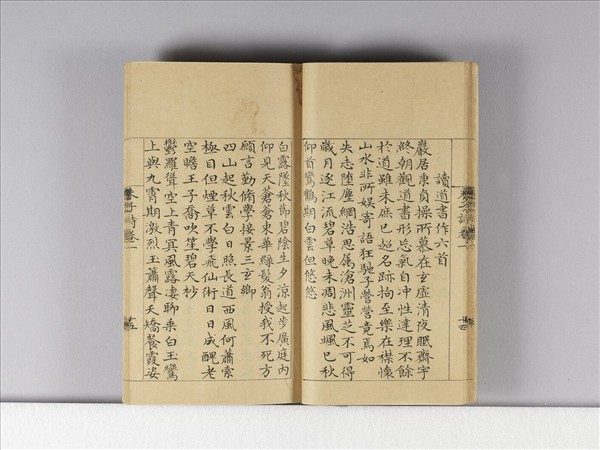 讀道書作六首
巖居秉貞操所慕在玄虛清夜眠齋宇
終朝觀道書形忘氣自冲性達理不餘
於道雖未庶已超名跡拘至樂在襟懷
山水非所娛寄語狂馳子營營竟焉如
失志墮塵網浩思屬滄洲靈芝不可得
歲月逐江流碧草晚未凋悲風颯已秋
仰首鸞鶴期白雲但悠悠
白露墜秋節碧陰生夕涼起步廣庭內
仰見天蒼蒼東華綠髮翁授我不死方
願言勤脩學接景三玄鄉
四山起秋雲白日照長道西風何蕭索
極目但煙草不學飛仙術日日成醜老
空瞻王子喬吹笙碧天杪
鬱羅聳空上青冥風露凄聊乘白玉鸞
上與九霄期激烈玉簫聲天矯餐霞姿